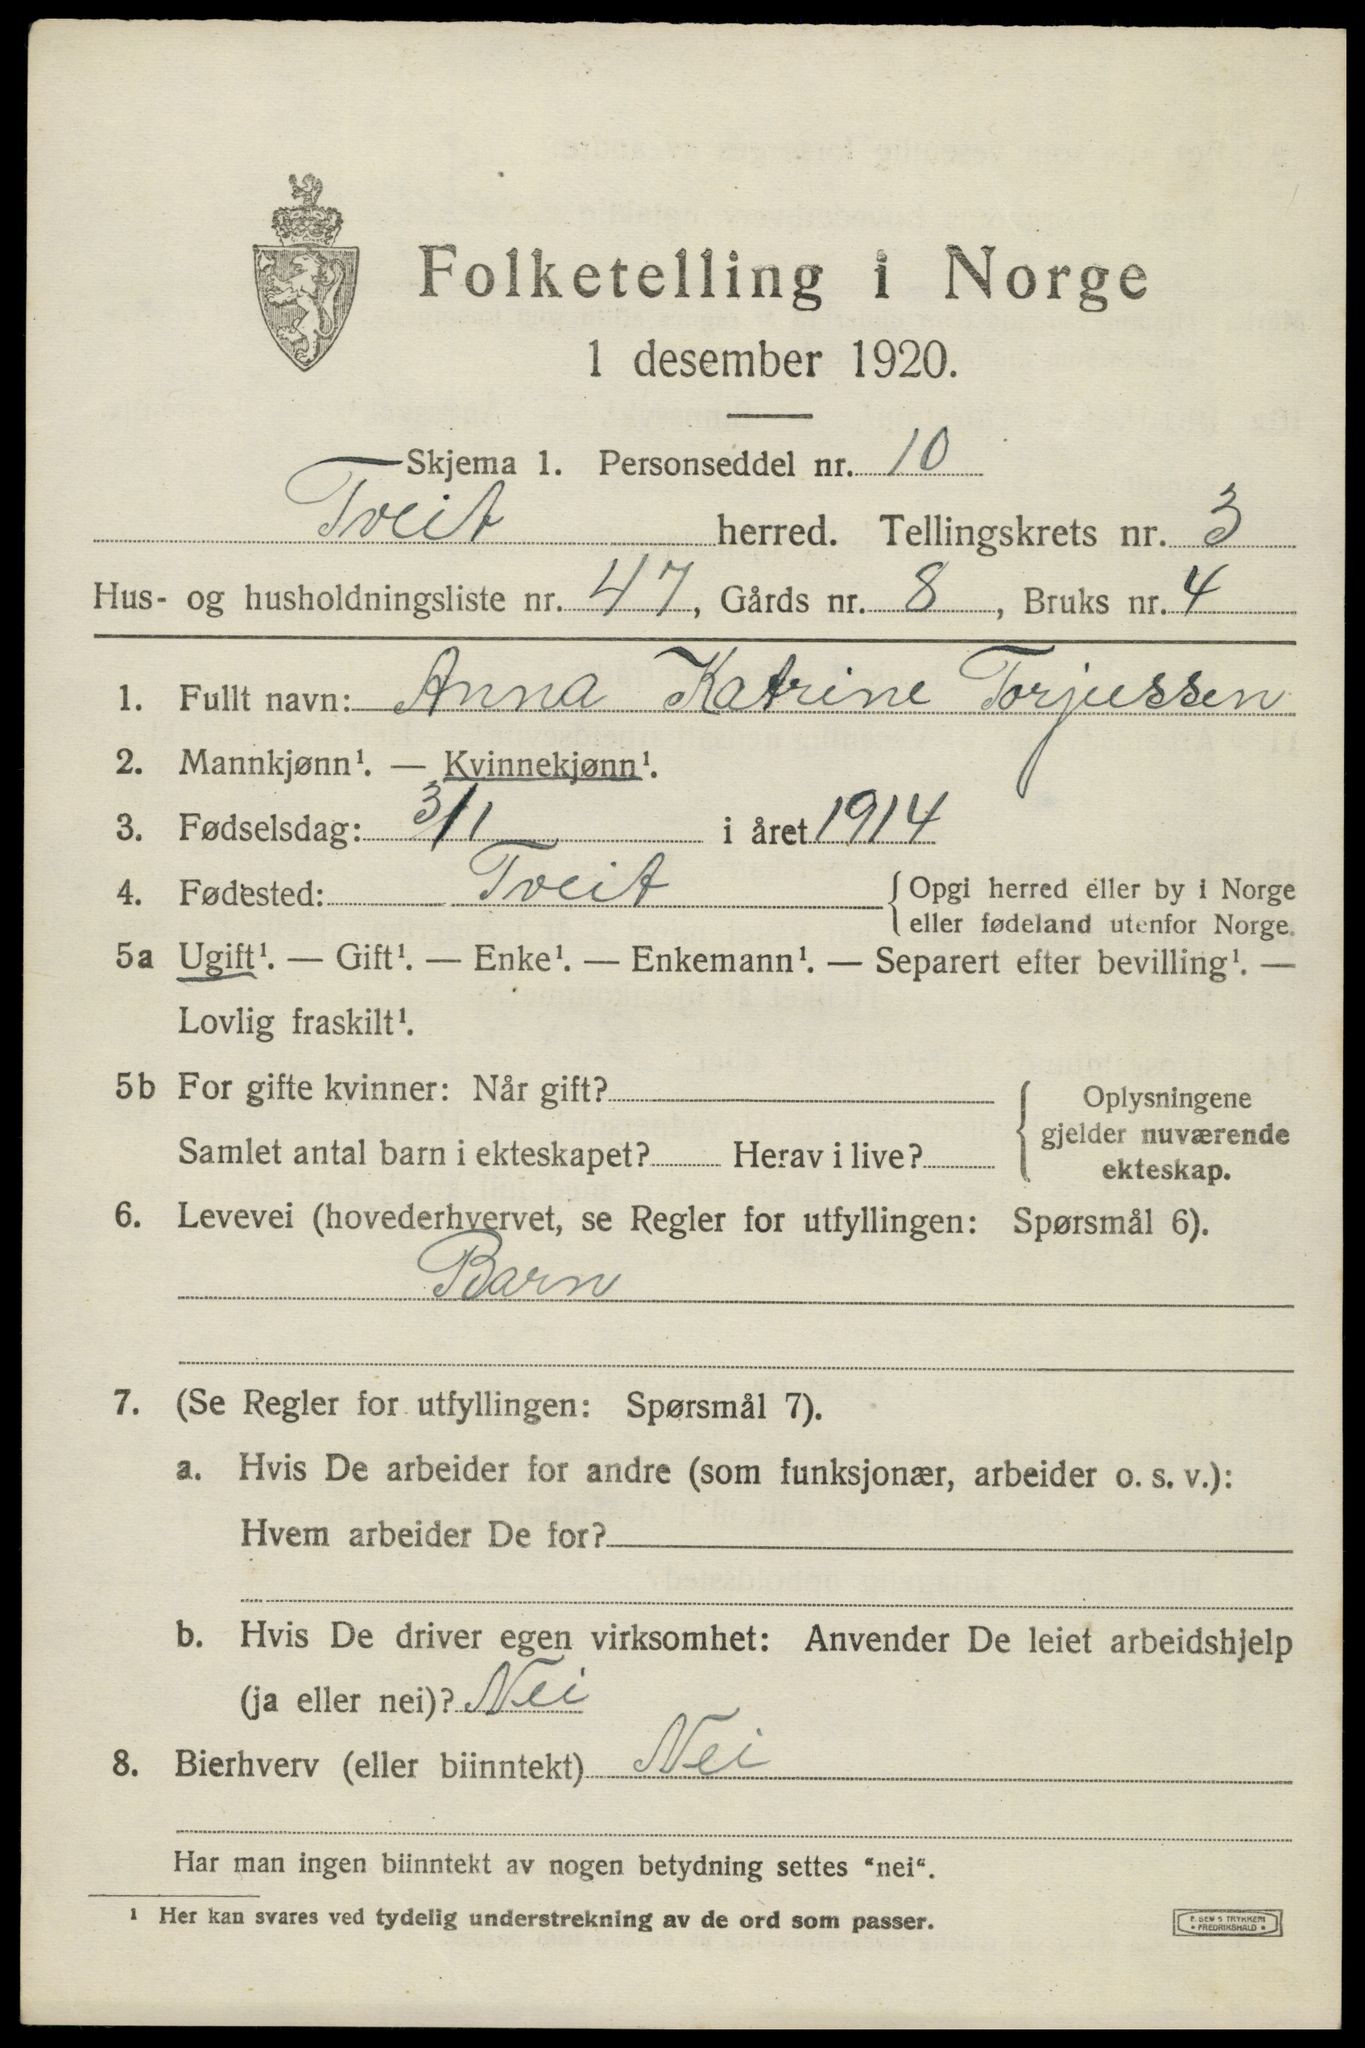 Folketelling i Norge
1 desember 1920.
Skjema 1. Personseddel nr. 10
Tveit herred. Tellingskrets nr. 3
Hus- og husholdningsliste nr. 47, Gårds nr. 8, Bruks nr. 4
1. Fullt navn: Anna Katrine Torjussen
2. Mannkjønn¹. — Kvinnekjønn¹.
3. Fødselsdag: 3/1 i året 1914
4. Fødested: Tveit {Opgi herred eller by i Norge
eller fødeland utenfor Norge.
5a Ugift¹. — Gift¹. — Enke¹. — Enkemann¹. — Separert efter bevilling¹. —
Lovlig fraskilt¹.
5b For gifte kvinner: Når gift?
Samlet antal barn i ekteskapet? Herav i live?
Oplysningene
gjelder nuværende
ekteskap.
6. Levevei (hovederhvervet, se Regler for utfyllingen: Spørsmål 6).
Barn
7. (Se Regler for utfyllingen: Spørsmål 7).
a. Hvis De arbeider for andre (som funksjonær, arbeider o. s. v.):
Hvem arbeider De for?
b. Hvis De driver egen virksomhet: Anvender De leiet arbeidshjelp
(ja eller nei)? Nei
8. Bierhverv (eller biinntekt) Nei
Har man ingen biinntekt av nogen betydning settes "nei".
¹ Her kan svares ved tydelig understrekning av de ord som passer.
E. SEM'S TRYKKERI
• FREDRIKSHALD •